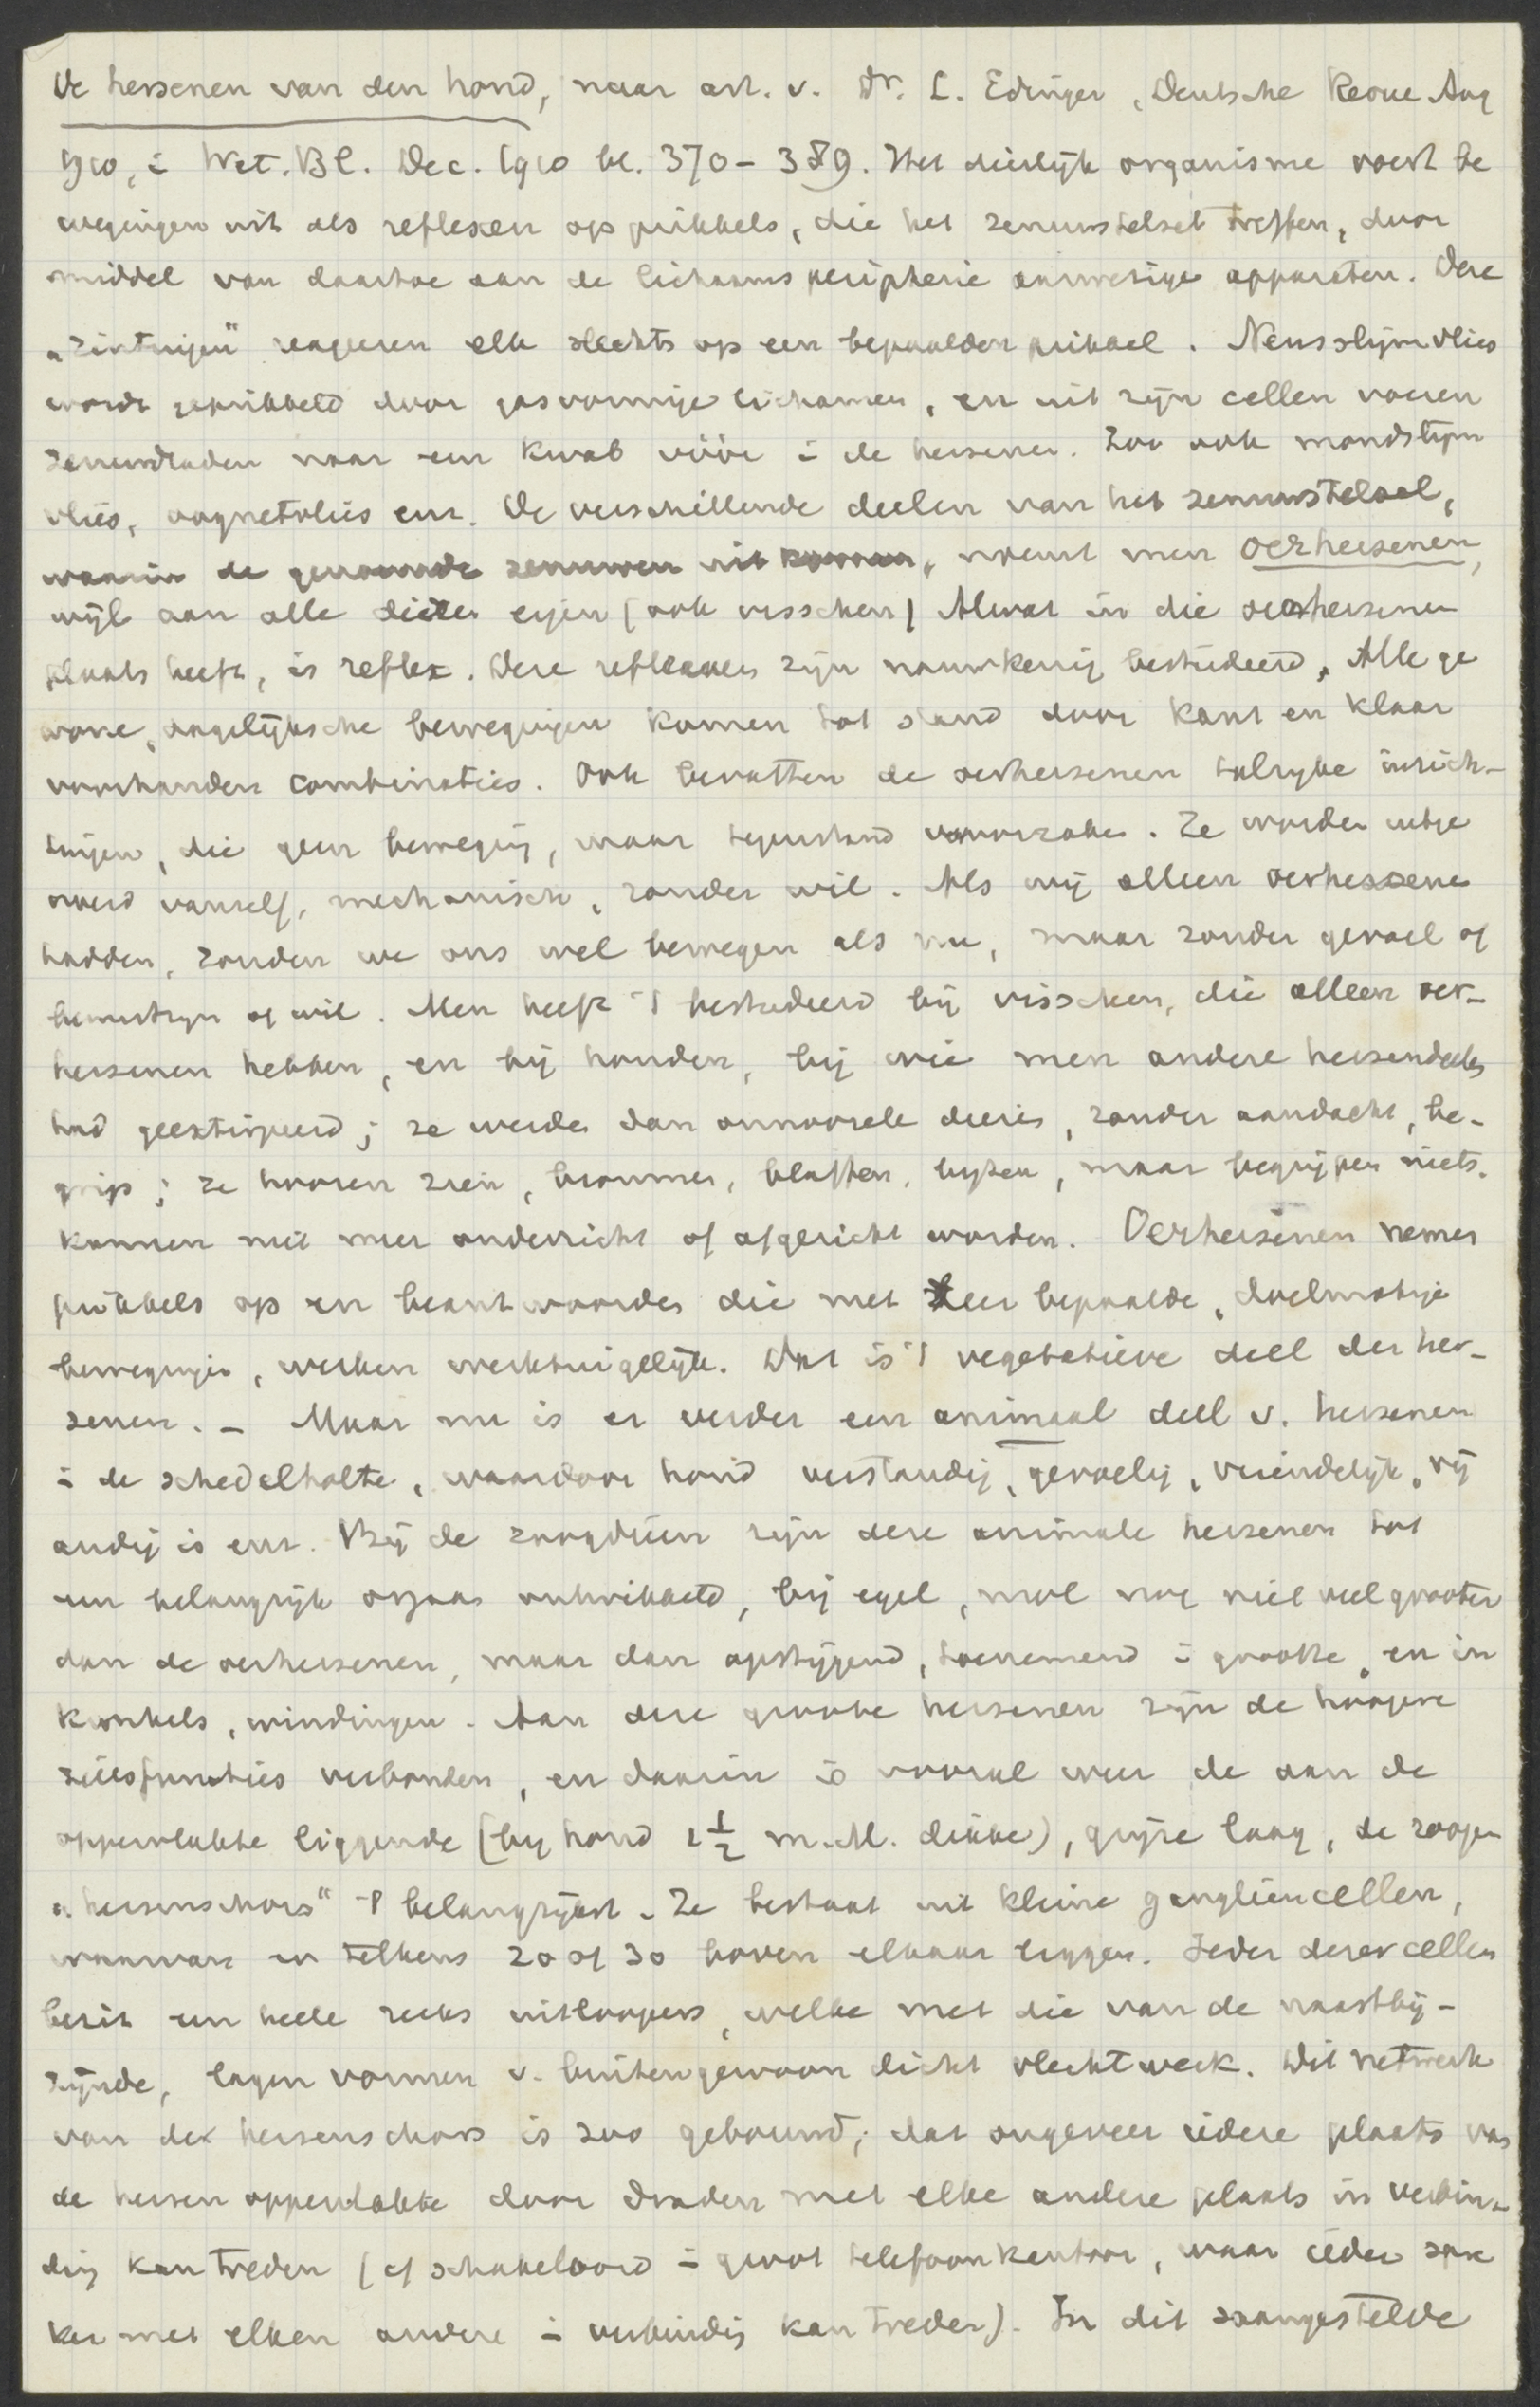 De hersenen van den hond, naar art. v. Dr. L. Edinger, Deutsche Revue Aug
1910, i Wet. Bl. Dec. 1910 bl. 370-389. Het dierlijk organisme voert be
wegingen uit als reflexen op prikkels, die het zenuwstelsel treffen, door
middel van daartoe aan de lichaamsperipherie aanwezige apparaten. Deze
„zintuigen" reageren elk slechts op een bepaalden prikkel. Neusslijmvlies
wordt geprikkeld door gasvormige lichamen, en uit zijn cellen voeren
zenuwdraden naar een kwab vóór i de hersenen. Zoo ook mondslijm
vlies, oognetvlies enz. De verschillende deelen van het zenuwstelsel,
waarin de genoemde zenuwen uit komen, noemt men oerhersenen,
wijl aan alle dieren eigen (ook visschen) Alwat in die oerhersenen
plaats heeft, is reflex. Deze reflexen zijn nauwkeurig bestudeerd. Alle ge
wone, dagelijksche bewegingen komen tot stand door kant en klaar
voorhanden combinaties. Ook bevatten de oerhersenen talrijke inrich-
tingen, die geen beweging, maar toestand veroorzaken. Ze worden uitge
voerd vanzelf, mechanisch, zonder wil. Als wij alleen oerhersenen
hadden, zouden we ons wel bewegen als nu, maar zonder gevoel of
bewustzijn of wil. Men heeft 't bestudeerd bij visschen, die alleen oer-
hersenen hebben, en bij honden, bij wie men andere hersendeelen
had geextirpeerd; ze werden dan onnoozele dieren, zonder aandacht, be-
grip; ze hooren zien, brommen, blaffen, bijten, maar begrijpen niets.
kunnen niet meer onderricht of afgericht worden. Oerhersenen nemen
prikkels op en beantwoorden die met zeer bepaalde, doelmatige
bewegingen, werken werktuigelijk. Dat is 't vegetatieve deel der her-
senen. - Maar nu is er verder een animaal deel v. hersenen
i de schedelholte, waardoor hond verstandig, gevoelig, vriendelijk, vij
andig is enz. Bij de zoogdieren zijn deze animale hersenen tot
een belangrijk orgaan ontwikkeld, bij egel, mol nog niet veel grooter
dan de oerhersenen, maar dan opstijgend, toenemend i grootte, en in
kronkels, windingen. Aan deze groote hersenen zijn de hoogere
zielsfuncties verbonden, en daarin is vooral weer de aan de
oppervlakte liggende (bij hond 2 1/2 m.M. dikke), grijze laag, de zoogen
„hersenschors" 't belangrijkst. Ze bestaat uit kleine gangliëncellen,
waarvan er telkens 20 of 30 boven elkaar liggen. Ieder dezer cellen
bezit een heele reeks uitloopers, welke met die van de naastbij-
zijnde, lagen vormen v. buitengewoon dicht vlechtwerk. Dit netwerk
van der hersenschors is zoo gebouwd, dat ongeveer iedere plaats van
de hersenoppervlakte door draden met elke andere plaats in verbin-
ding kan treden (cf schakelbord i groot telefoonkantoor, waar ieder spre
ker met elken andere i verbinding kan treden). In dit saamgestelde